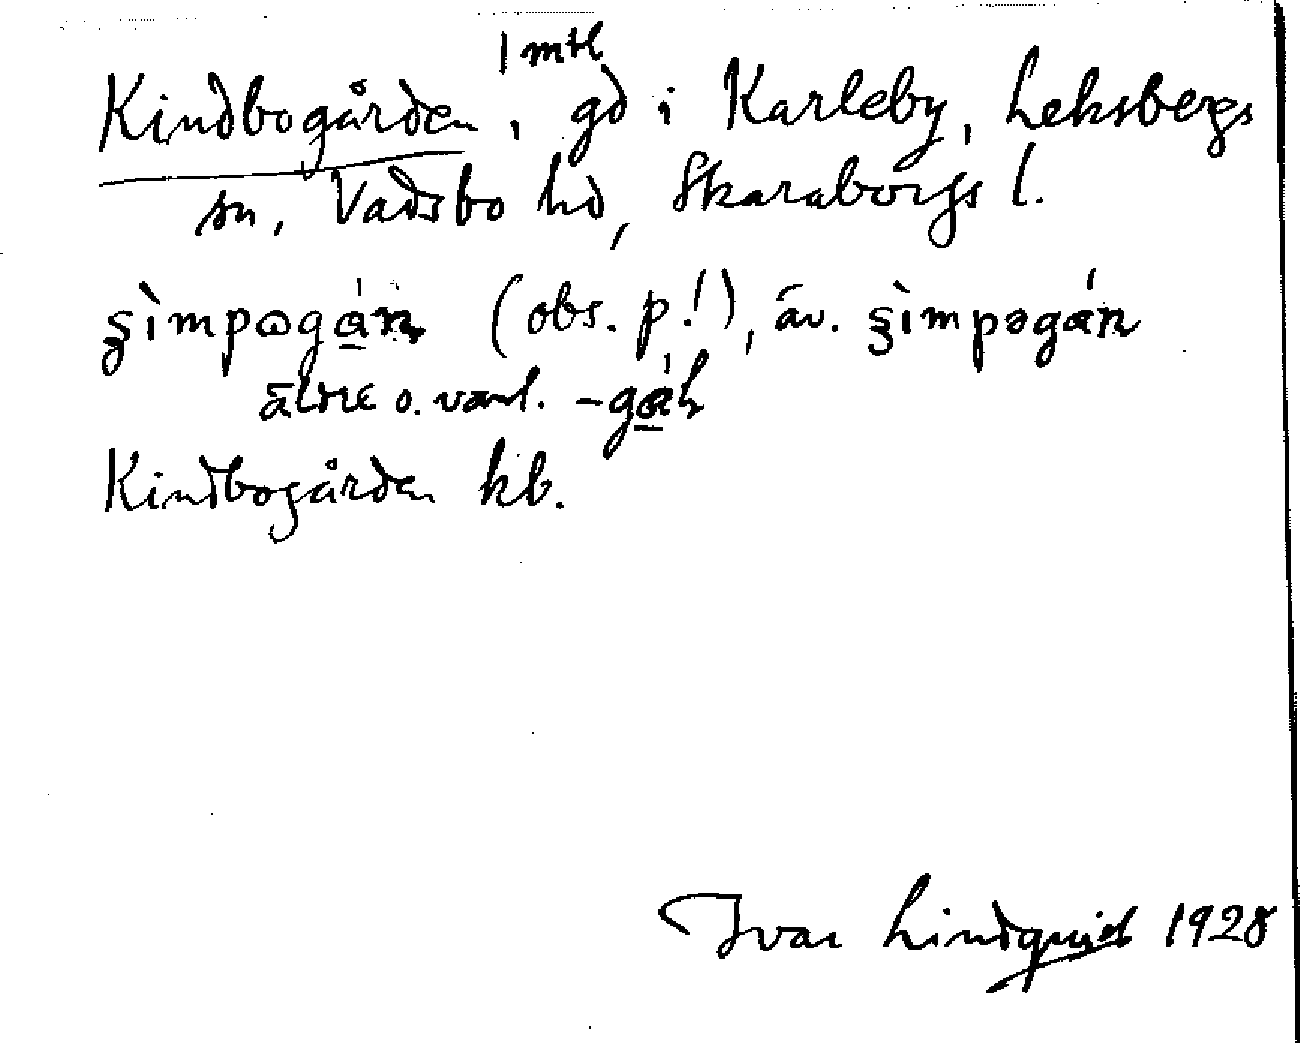 1 mtl
Kindbogården, gd i Karleby, Leksbergs
sn, Vadsbo hd, Skaraborgs l.
(obs. p!), äv.
äldre o. vanl.
Kindbogården kb.
Ivar Lindquist 1928